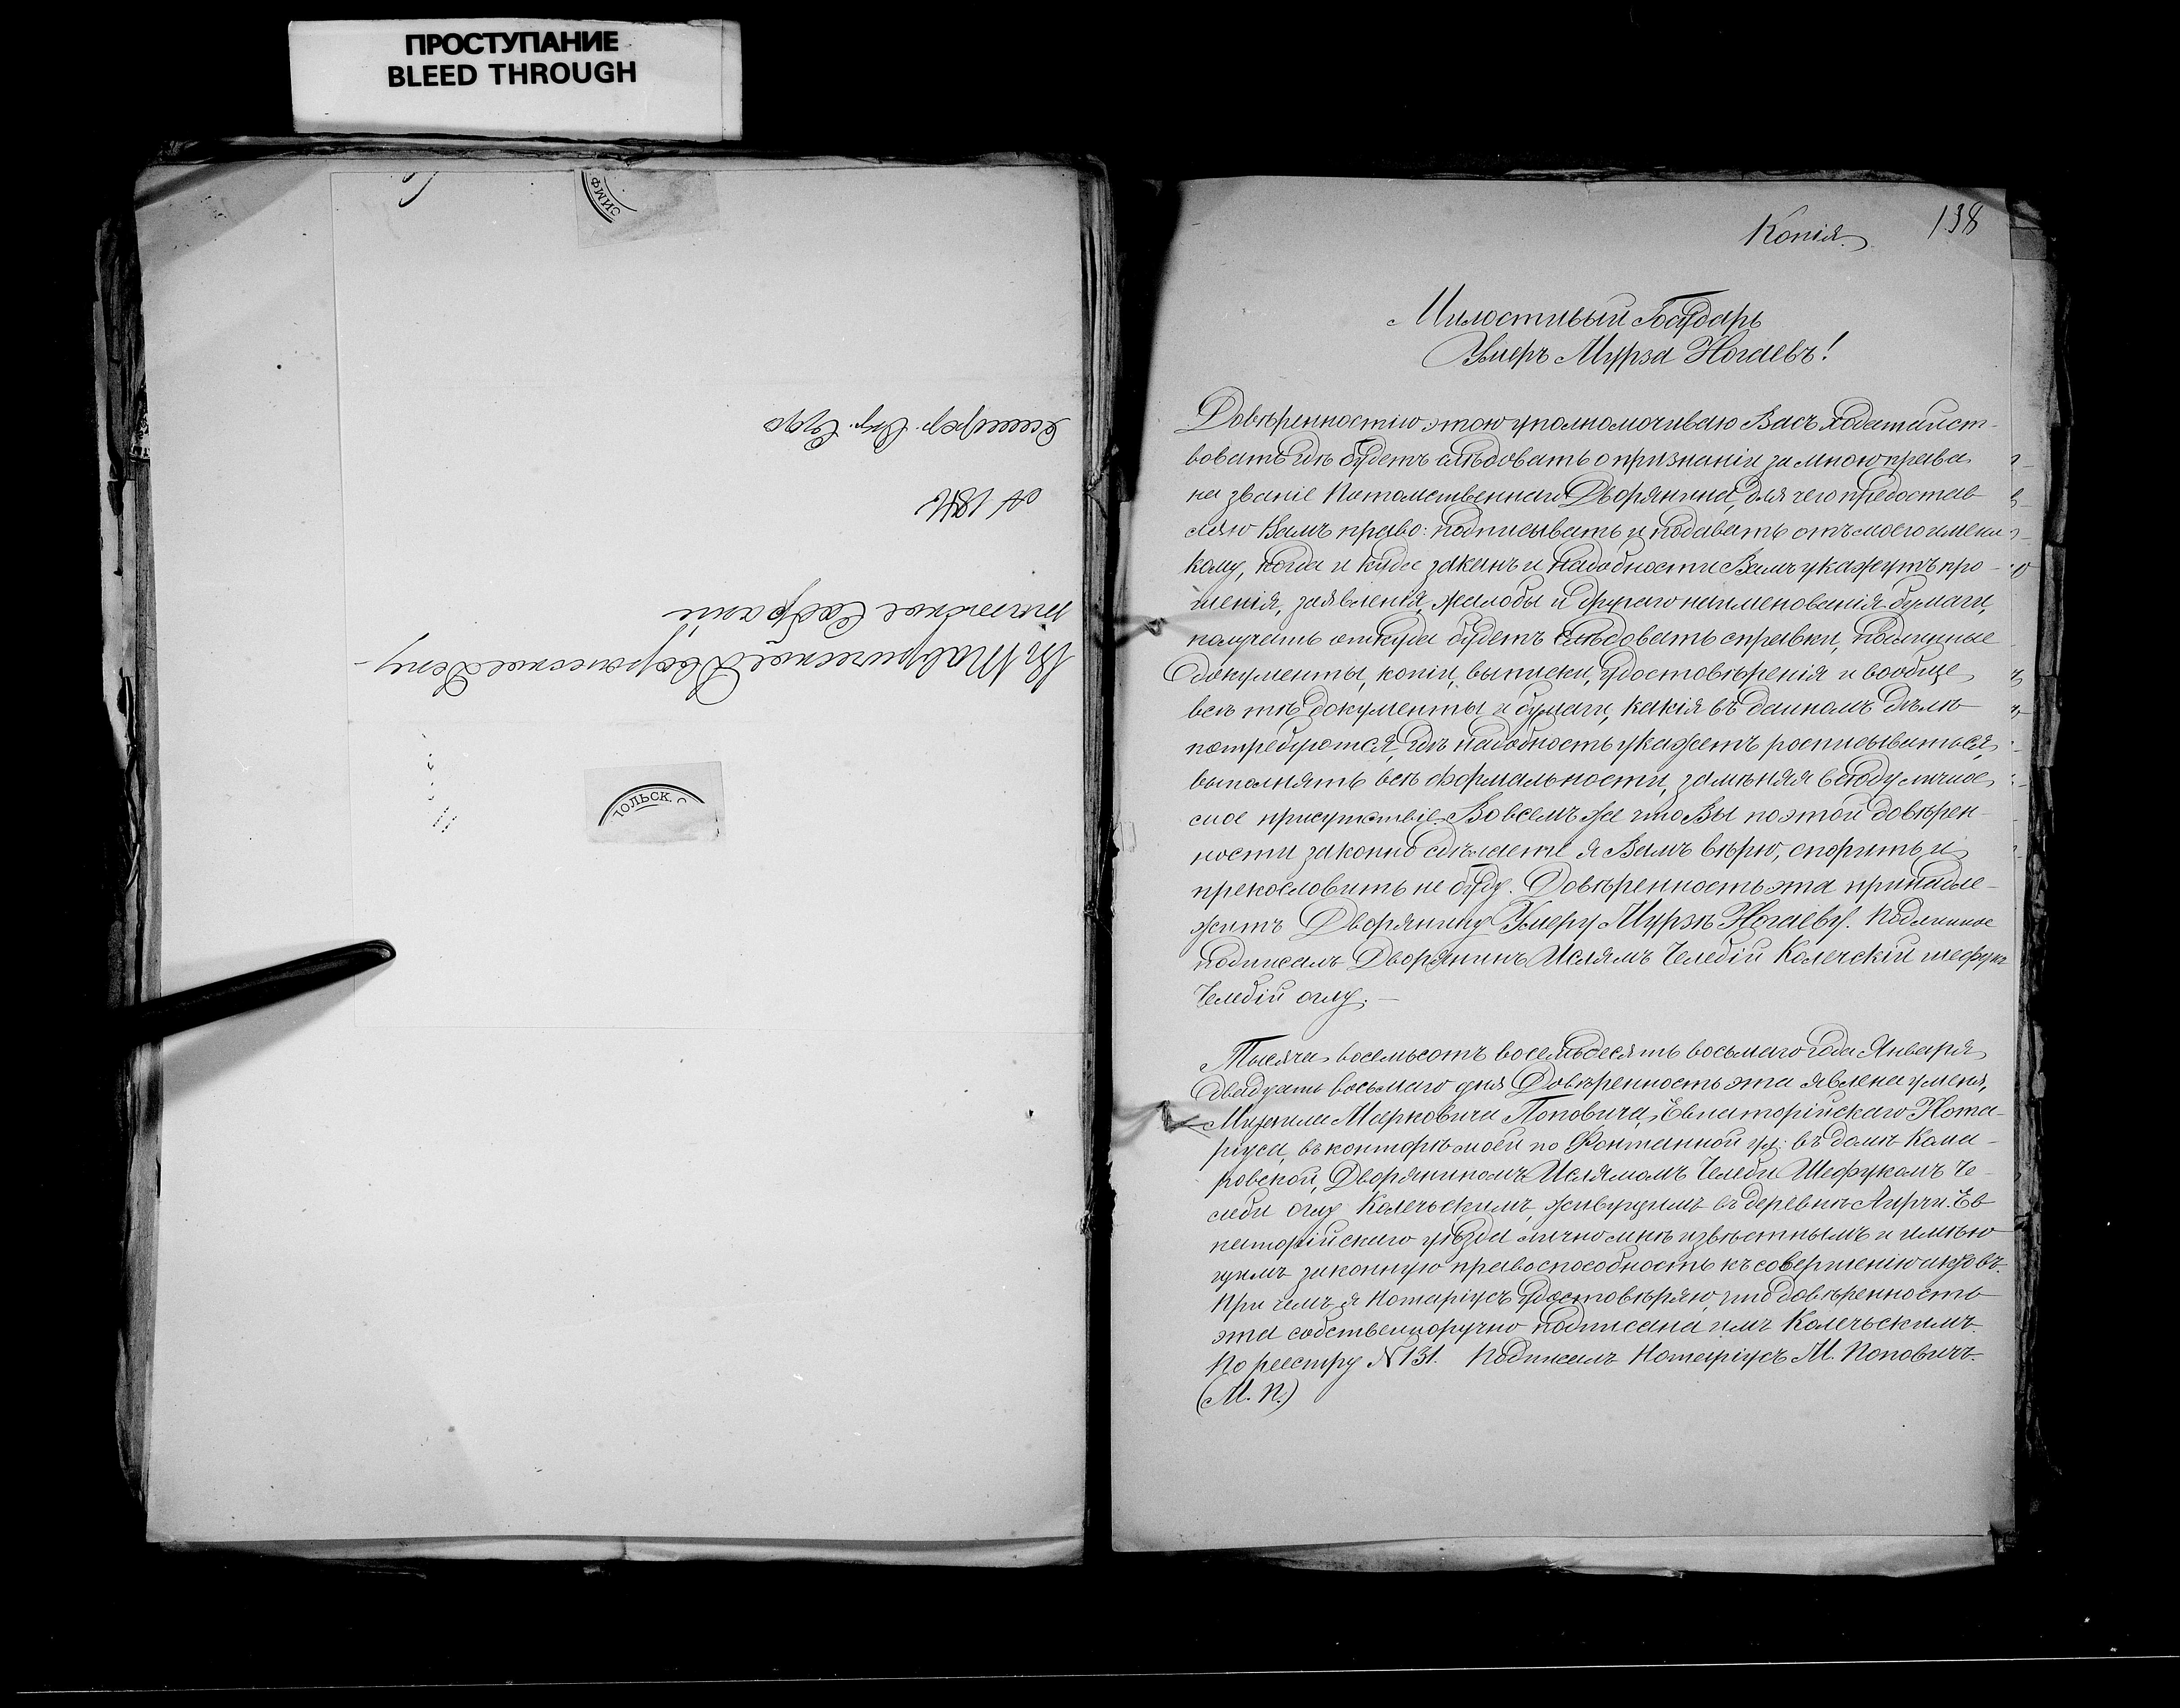 ПРОСТУПАНИЕ
BLEED THROUGH
СИМФ
Симфер. Окр. Суд
№ 1842
Въ Таврическое Дворянское Депу-
татское Собраніе
ПОЛЬСК. С
138
Копія
Милостивый Государь
Умеръ Мурза Ногаевъ!
Довѣренностію этою уполномочиваю Васъ ходатайст-
вовать гдѣ будетъ слѣдовать о признаніи за мною права
на званіе Потомственнаго Дворянина, для чего предостав
ляю Вамъ право: подписывать и подавать отъ моего имени
кому, когда и куда законъ и надобности Вамъ укажутъ про-
шенія, заявленія, жалобы и другаго наименованія бумаги,
получать откуда будетъ слѣдовать справки, подлинные
документы, копіи, выписки, удостовѣренія и вообще
всѣ тѣ документы и бумаги, какія въ данномъ дѣлѣ
потребуются, гдѣ надобность укажетъ росписываться,
выполнять всѣ формальности, замѣняя всюду личное
мое присутствіе. Во всемъ же что Вы по этой довѣрен-
ности законно сдѣлаете я Вамъ вѣрю, спорить и
прекословить не буду. Довѣренность эта принадле-
житъ Дворянину Умеру Мурзѣ Ногаеву. Подлинное
подписалъ Дворянинъ Ислямъ Челебій Колечскій шефук
Челебій оглу.
Тысяча восемьсотъ восемьдесятъ восьмаго года Января
двадцать восьмаго дня Довѣренность эта явлена у меня,
Михаила Марковича Поповича, Евпаторійскаго Нота-
ріуса, въ конторѣ моей по Фонтанной ул: въ домѣ Кома-
ровской, Дворяниномъ Ислямомъ Челеби Шефукомъ Че-
леби оглу Колечьскимъ, живущимъ въ деревнѣ Аирчи. Ев
паторійскаго уѣзда лично мнѣ извѣстнымъ и имѣю
щимъ законную правоспособность къ совершенію актовъ.
При чемъ я Нотаріусъ удостовѣряю, что довѣренность
эта собственноручно подписана имъ Колечьскимъ.
По реестру № 131. Подписалъ Нотаріусъ М. Поповичъ.
(М. П.)